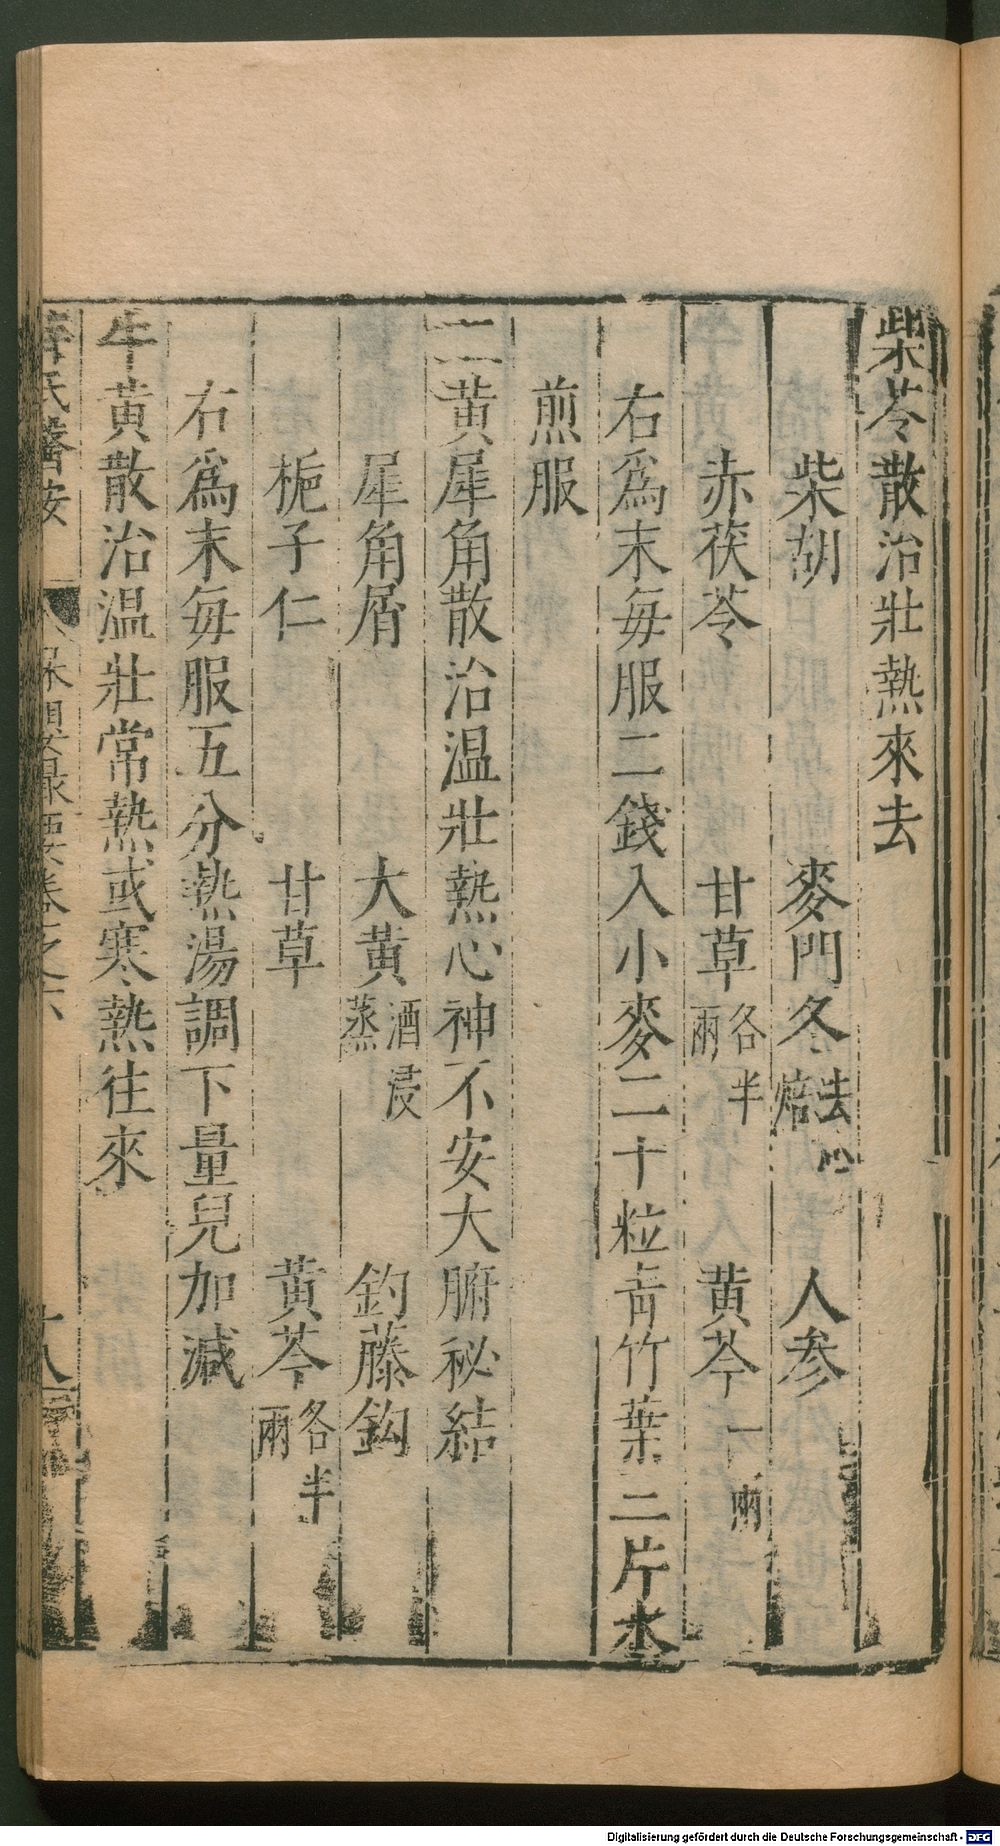 柴苓散治壯熱來去
柴胡 麥門冬去心焙 人參
赤茯苓 甘草各半兩 黃芩一兩
右爲末毎服二錢入小麥二十粒青竹葉二片水
煎服
二黃犀角散治温壯熱心神不安大腑祕結
犀角屑 大黃酒浸蒸 釣藤鈎
梔子仁 甘草 黃芩各半兩
右爲末毎服五分熱湯調下量兒加減
牛黃散治温壯常熱或寒熱往來
薛氏醫按 保嬰撮要卷之六 十八
Digitalisierung gefördert durch die Deutsche Forschungsgemeinschaft - DFG